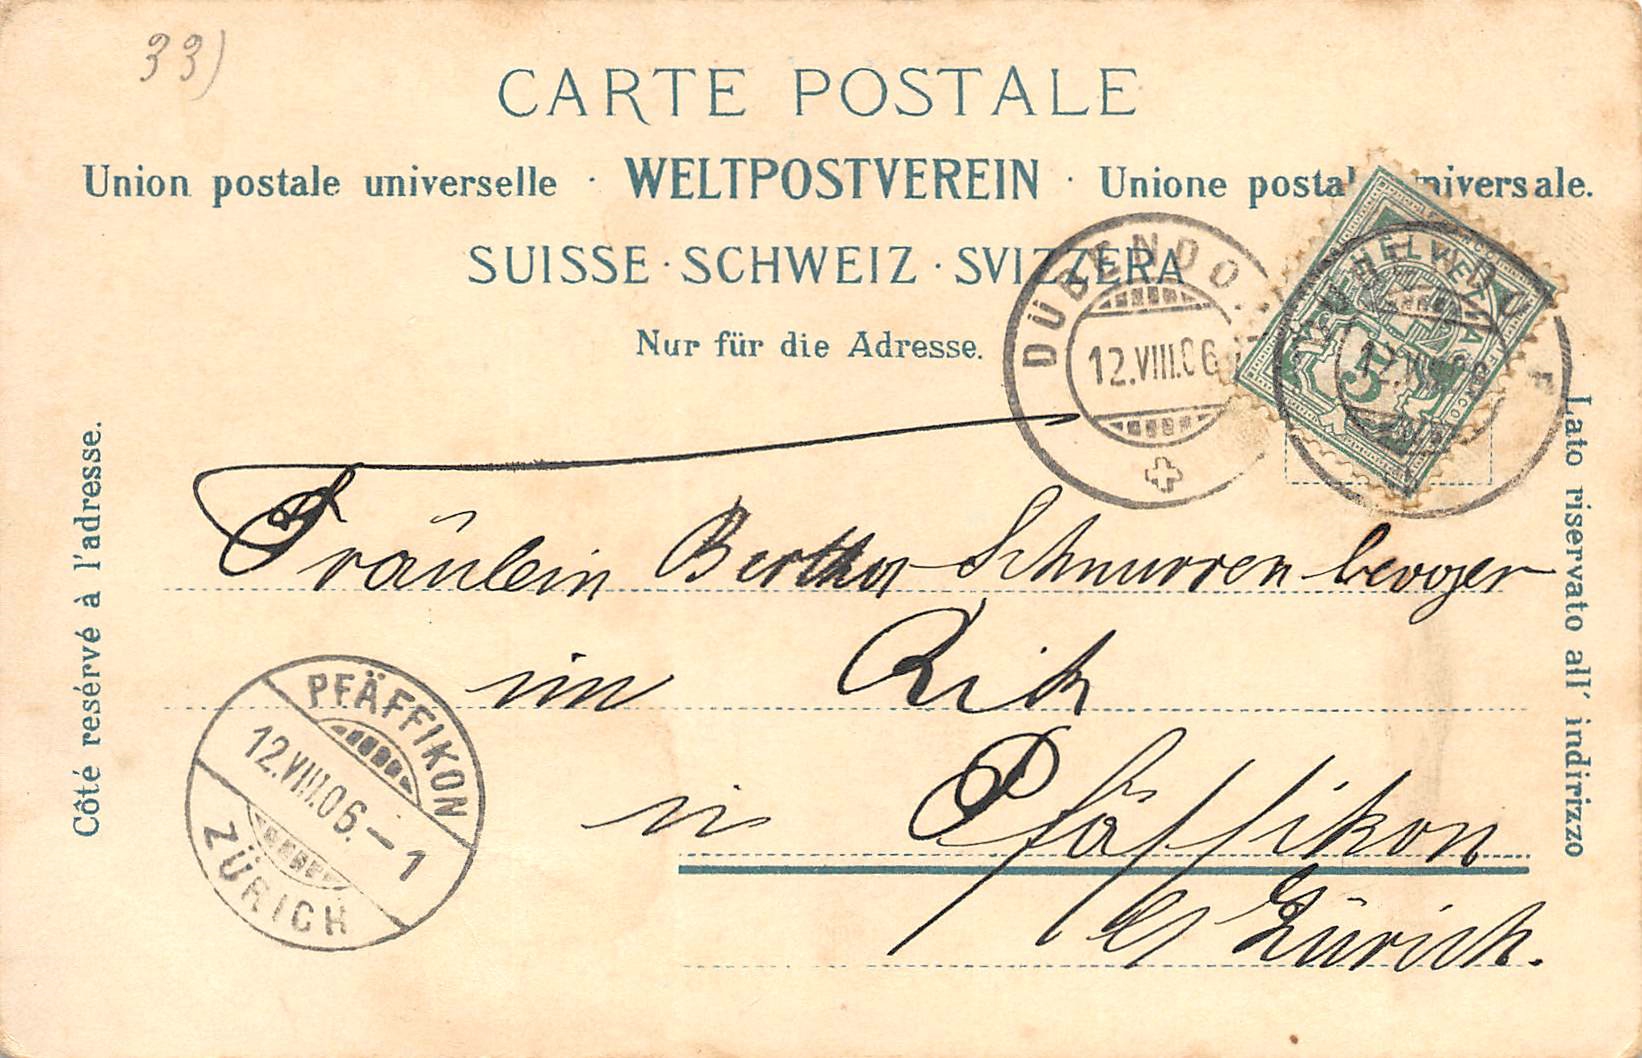 33)
CARTE POSTALE
Union postale universelle · WELTPOSTVEREIN · Unione postal universale.
SUISSE · SCHWEIZ · SVIZZERA
Nur für die Adresse.
DÜBENDO
12.VIII.06
HELVETIA
5
12.VIII.06
Côté resérvé à l'adresse.
Lato riservato all' indirizzo
Fräulein Bertha Schnurrenberger
im Rik
in Pfäffikon
Zürich.
PFÄFFIKON
12.VIII.06.-1
ZÜRICH